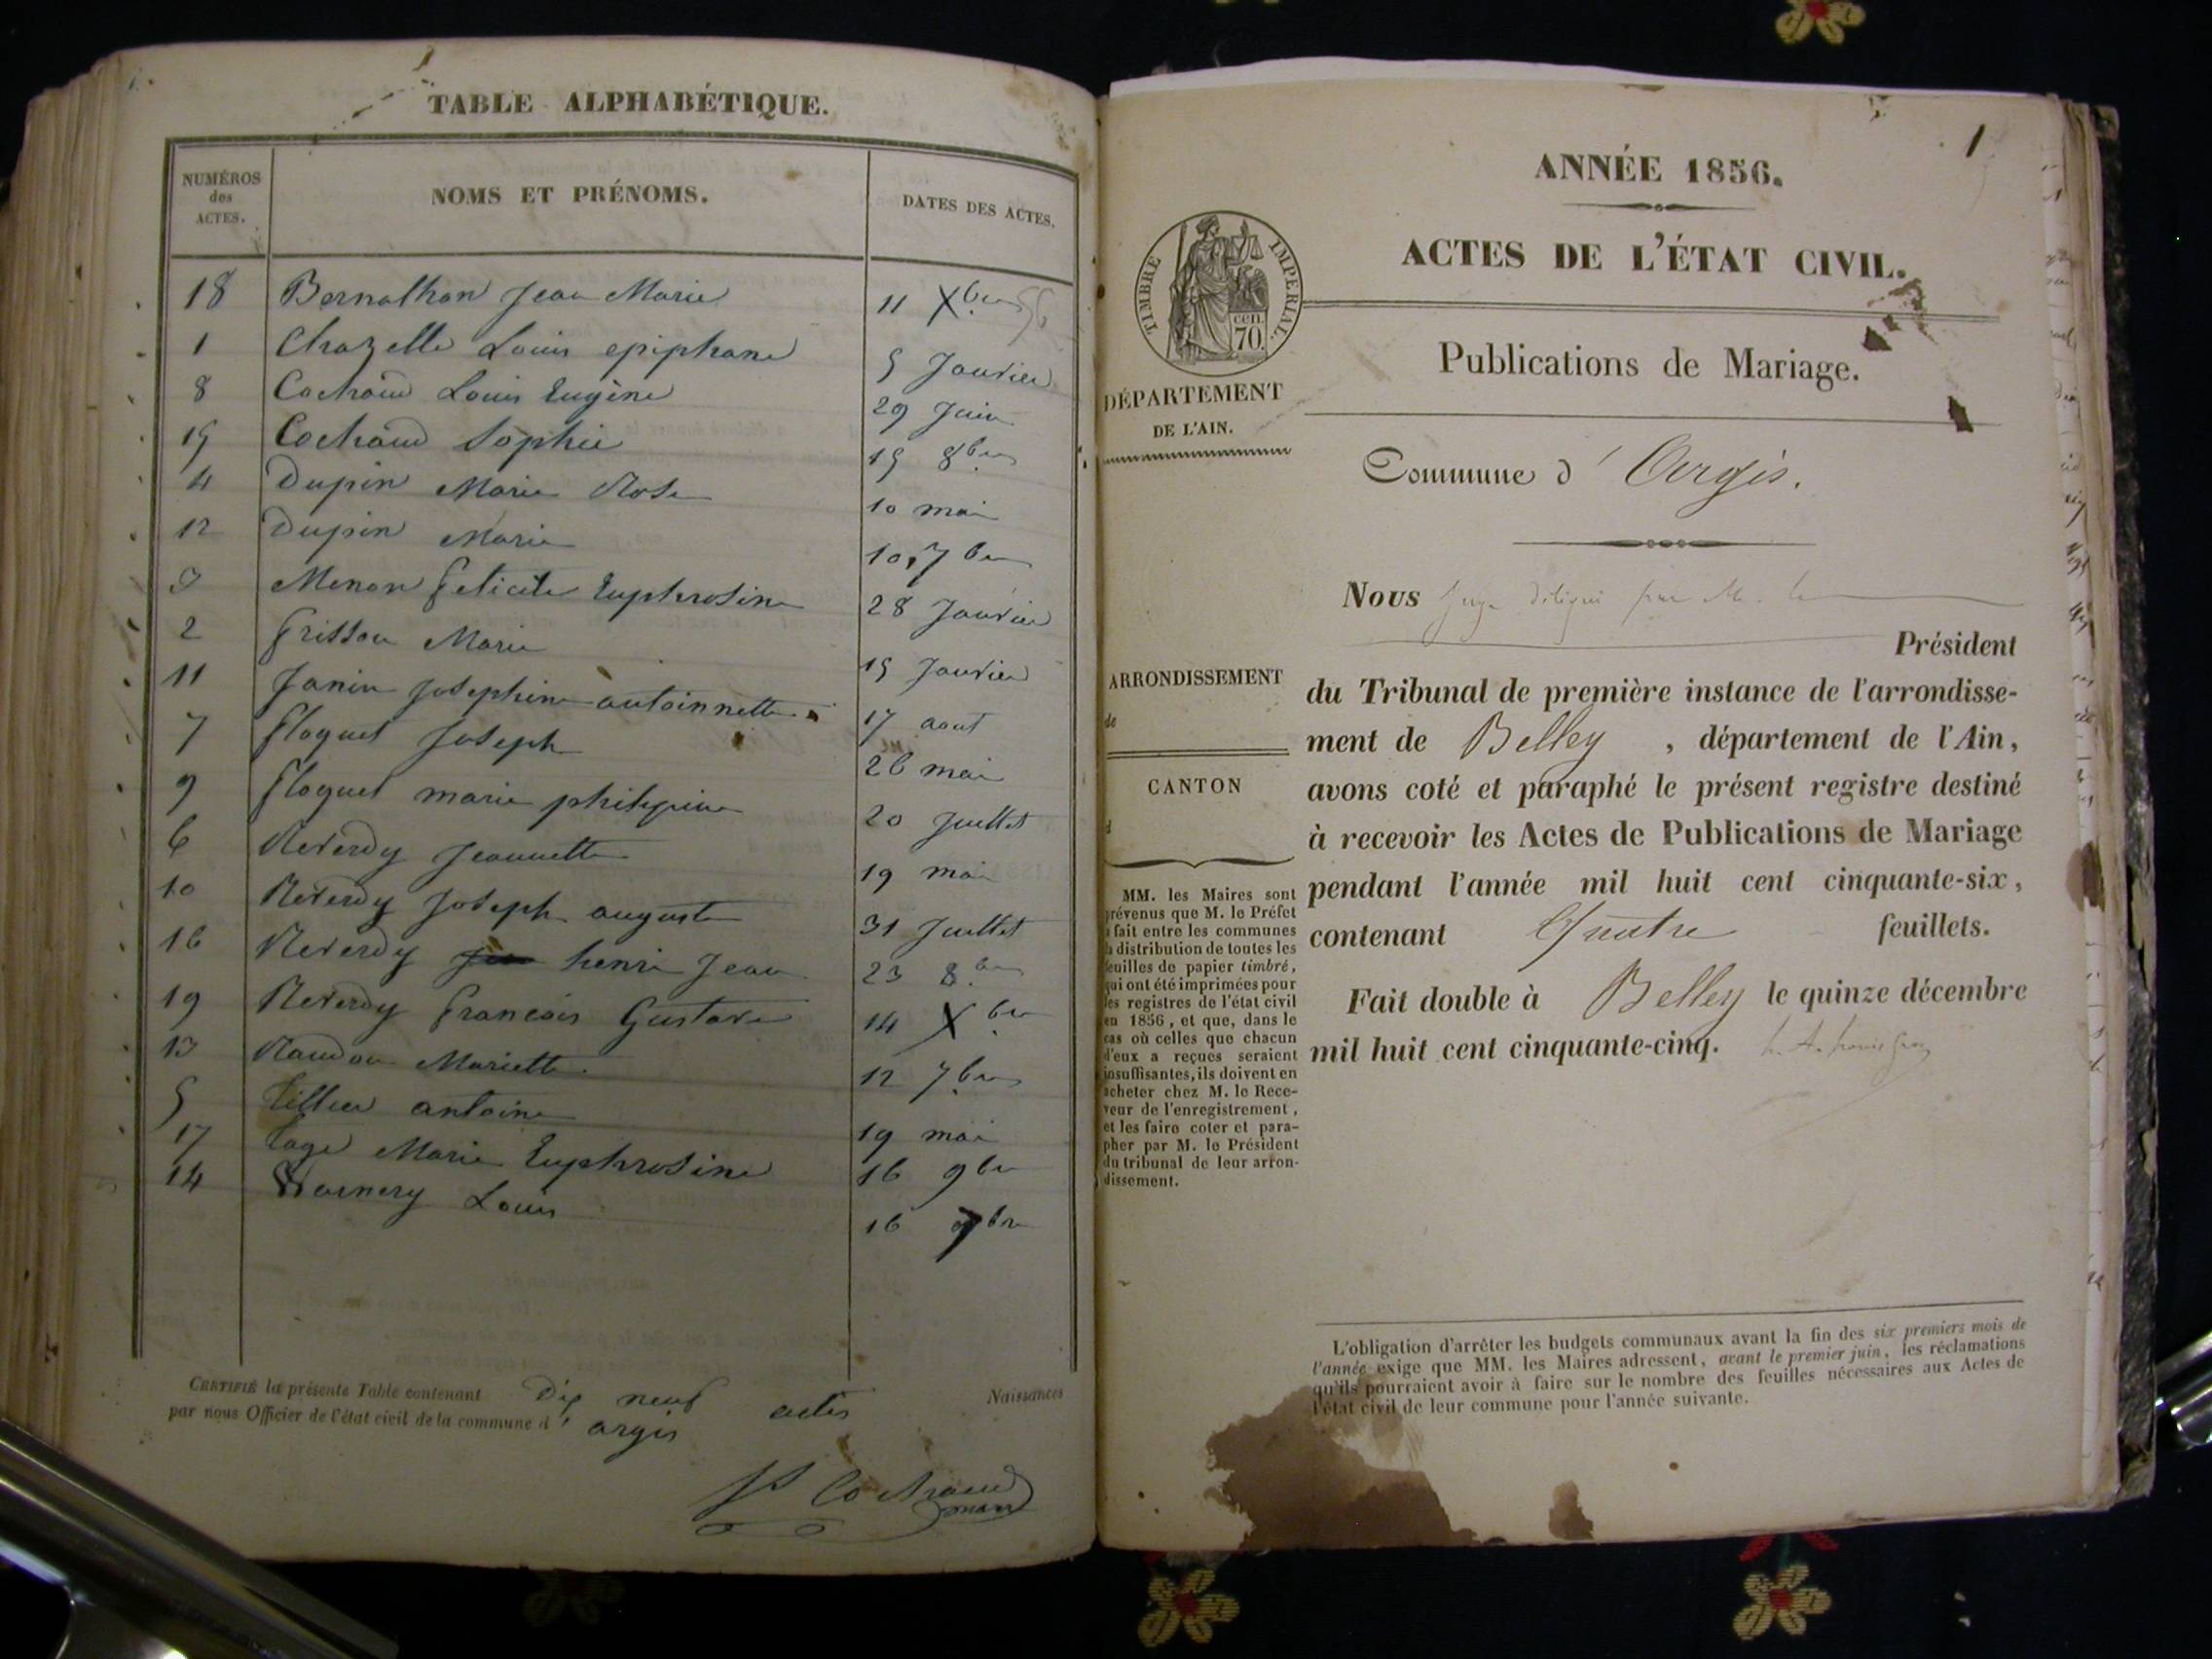 TABLE ALPHABÉTIQUE.
NUMÉROS des ACTES. NOMS ET PRÉNOMS. DATES DES ACTES.
18 Bernathan Jean Marie 11 Xbre 56
1 Chazelle Louis epiphane 5 Janvier
8 Cochaud Louis Eugène 29 Juin
15 Cochaud Sophie 15 8bre
4 Dupin Marie Rose 10 mai
12 Dupin Marie 10, 7bre
3 Menan felicite Euphrosine 28 Janvier
2 frisson Marie 15 Janvier
11 Janin Josephine antoinnette 17 aout
7 floquet Joseph 26 mai
9 floquet marie philipine 20 Juillet
6 Reverdy Jeannette 19 mai
10 Reverdy Joseph auguste 31 Juillet
16 Reverdy henri Jean 23 8bre
19 Reverdy francois Gustave 14 Xbre
13 Raudon Mariette 12 7bre
5 Tillier antoine 19 mai
17 Tage Marie Euphrosine 16 9bre
14 Warnery Louis 16 7bre
CERTIFIÉ la présente Table contenant Dix neuf actes Naissances
par nous Officier de l'état civil de la commune d' argis
Cochaud
maire
1
ANNÉE 1856.
ACTES DE L'ÉTAT CIVIL.
TIMBRE IMPERIAL.
cen.
70.
Publications de Mariage.
DÉPARTEMENT
DE L'AIN.
Commune d' Argis.
Nous Juge délégué par M. le
Président
du Tribunal de première instance de l'arrondisse-
ment de Belley, département de l'Ain,
avons coté et paraphé le présent registre destiné
à recevoir les Actes de Publications de Mariage
pendant l'année mil huit cent cinquante-six,
contenant Quatre feuillets.
Fait double à Belley le quinze décembre
mil huit cent cinquante-cinq.
ARRONDISSEMENT
de
CANTON
d
MM. les Maires sont
prévenus que M. le Préfet
a fait entre les communes
la distribution de toutes les
feuilles de papier timbré,
qui ont été imprimées pour
les registres de l'état civil
en 1856, et que, dans le
cas où celles que chacun
d'eux a reçues seraient
insuffisantes, ils doivent en
acheter chez M. le Rece-
veur de l'enregistrement,
et les faire coter et para-
pher par M. le Président
du tribunal de leur arron-
dissement.
L'obligation d'arrêter les budgets communaux avant la fin des six premiers mois de
l'année exige que MM. les Maires adressent, avant le premier juin, les réclamations
qu'ils pourraient avoir à faire sur le nombre des feuilles nécessaires aux Actes de
l'état civil de leur commune pour l'année suivante.